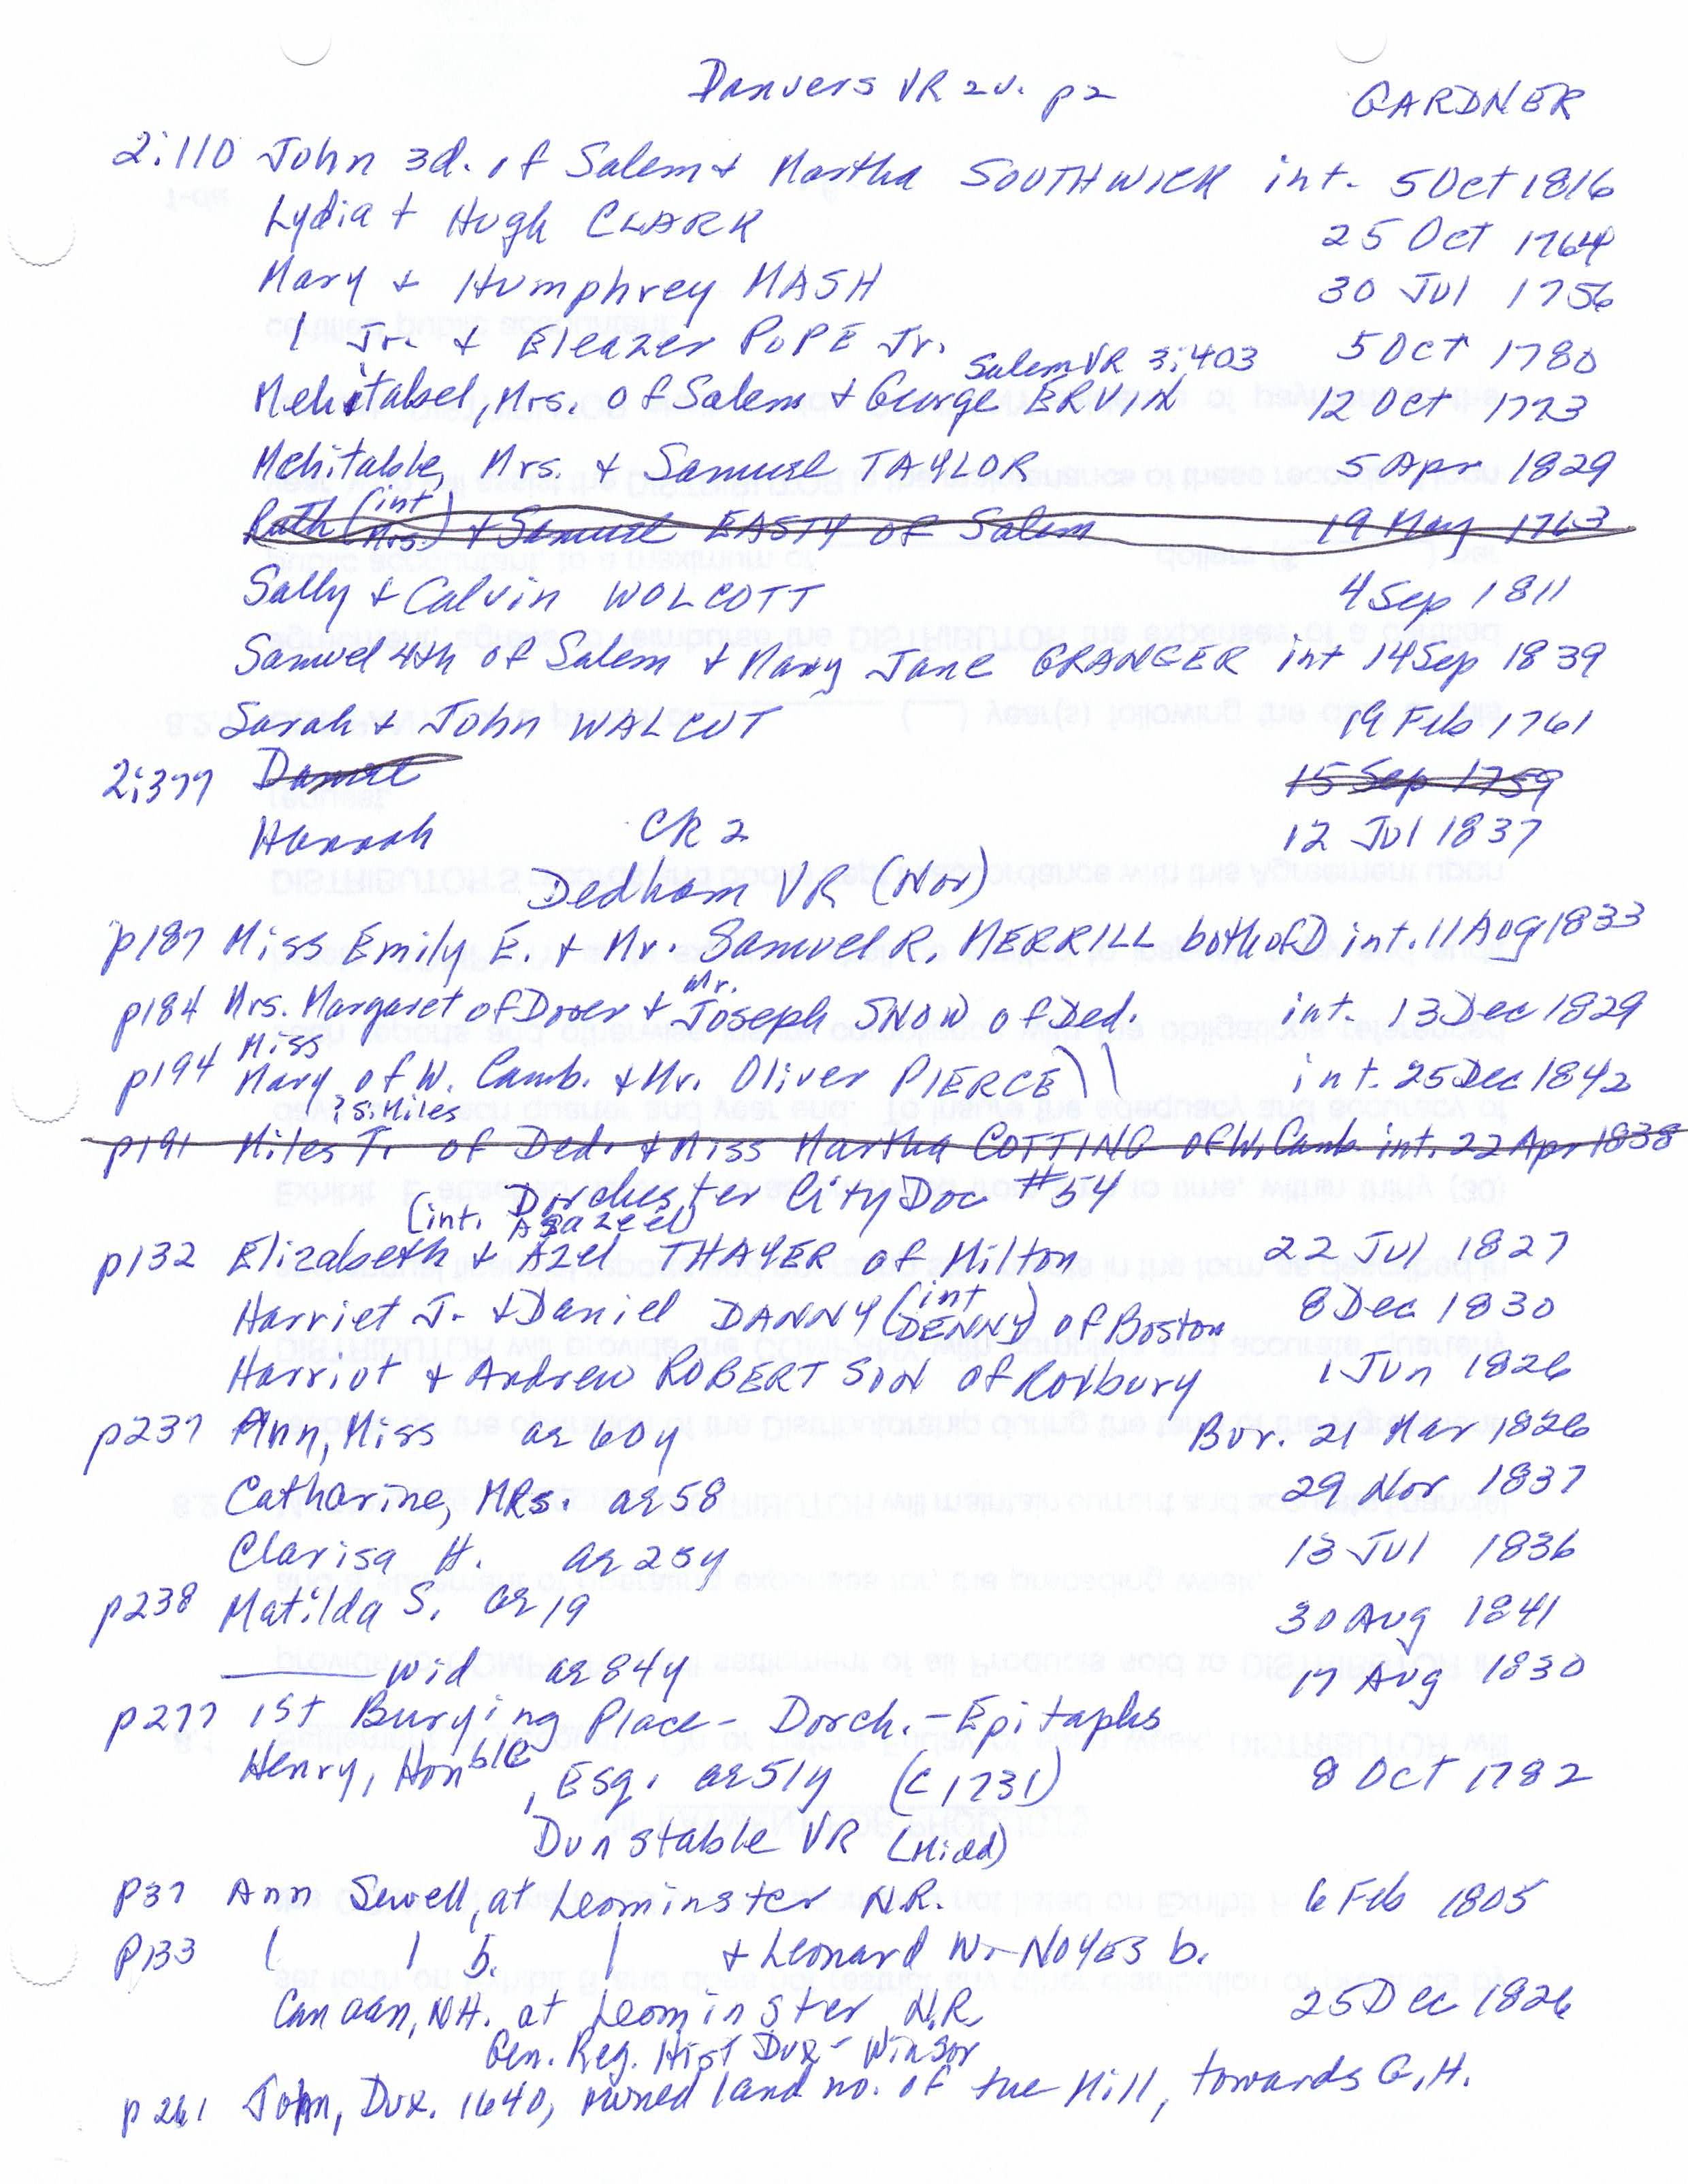 Danvers VR 2v. p2 GARDNER
2:110 John 3d. of Salem + Martha SOUTHWICK int. 5 Oct 1816
Lydia + Hugh CLARK 25 Oct 1764
Mary + Humphrey MASH 30 Jul 1756
Jr. + Eleazer POPE Jr. 5 Oct 1780
Salem VR 3:403
Mehitabel, Mrs. of Salem + George ERVIN 12 Oct 1773
Mehitable, Mrs. + Samuel TAYLOR 5 Apr 1829
Ruth (int Mrs.) + Samuel EASTY of Salem 19 May 1763
Sally + Calvin WOLCOTT 4 Sep 1811
Samuel 4th of Salem + Mary Jane GRANGER int 14 Sep 1839
Sarah + John WALCUT 19 Feb 1761
2:377 Daniel 15 Sep 1759
Hannah CR 2 12 Jul 1837
Dedham VR (Nor)
p187 Miss Emily E. + Mr. Samuel R. MERRILL both of D int. 11 Aug 1833
p184 Mrs. Margaret of Dover + Mr. Joseph SNOW of Ded. int. 13 Dec 1829
p194 Miss Mary of W. Camb. + Mr. Oliver PIERCE int. 25 Dec 1842
?S. Miles
p191 Miles T. of Ded. + Miss Martha COTTING of W. Camb. int. 22 Apr 1838
Dorchester City Doc #54
(int. Asazeel)
p132 Elizabeth + Azel THAYER of Milton 22 Jul 1827
Harriet J. + Daniel DANNY (int DENNY) of Boston 8 Dec 1830
Harriot + Andrew ROBERTSON of Roxbury 1 Jun 1826
p237 Ann, Miss ae 60y Bur. 21 Mar 1826
Catharine, MRs. ae 58 29 Nov 1837
Clarisa H. ae 25y 13 Jul 1836
p238 Matilda S. ae 19 30 Aug 1841
wid ae 84y 17 Aug 1830
p277 1st Burying Place - Dorch. - Epitaphs
Henry, Honble, Esq. ae 51y (c 1731) 8 Oct 1782
Dunstable VR (Midd)
p37 Ann Sewell, at Leominster N.R. 6 Feb 1805
p133 b. + Leonard W. NOYES b.
Canaan, NH. at Leominster N.R 25 Dec 1826
Gen. Reg. Hist Dux - Winsor
p261 John, Dux. 1640, owned land no. of the Mill, towards G.H.